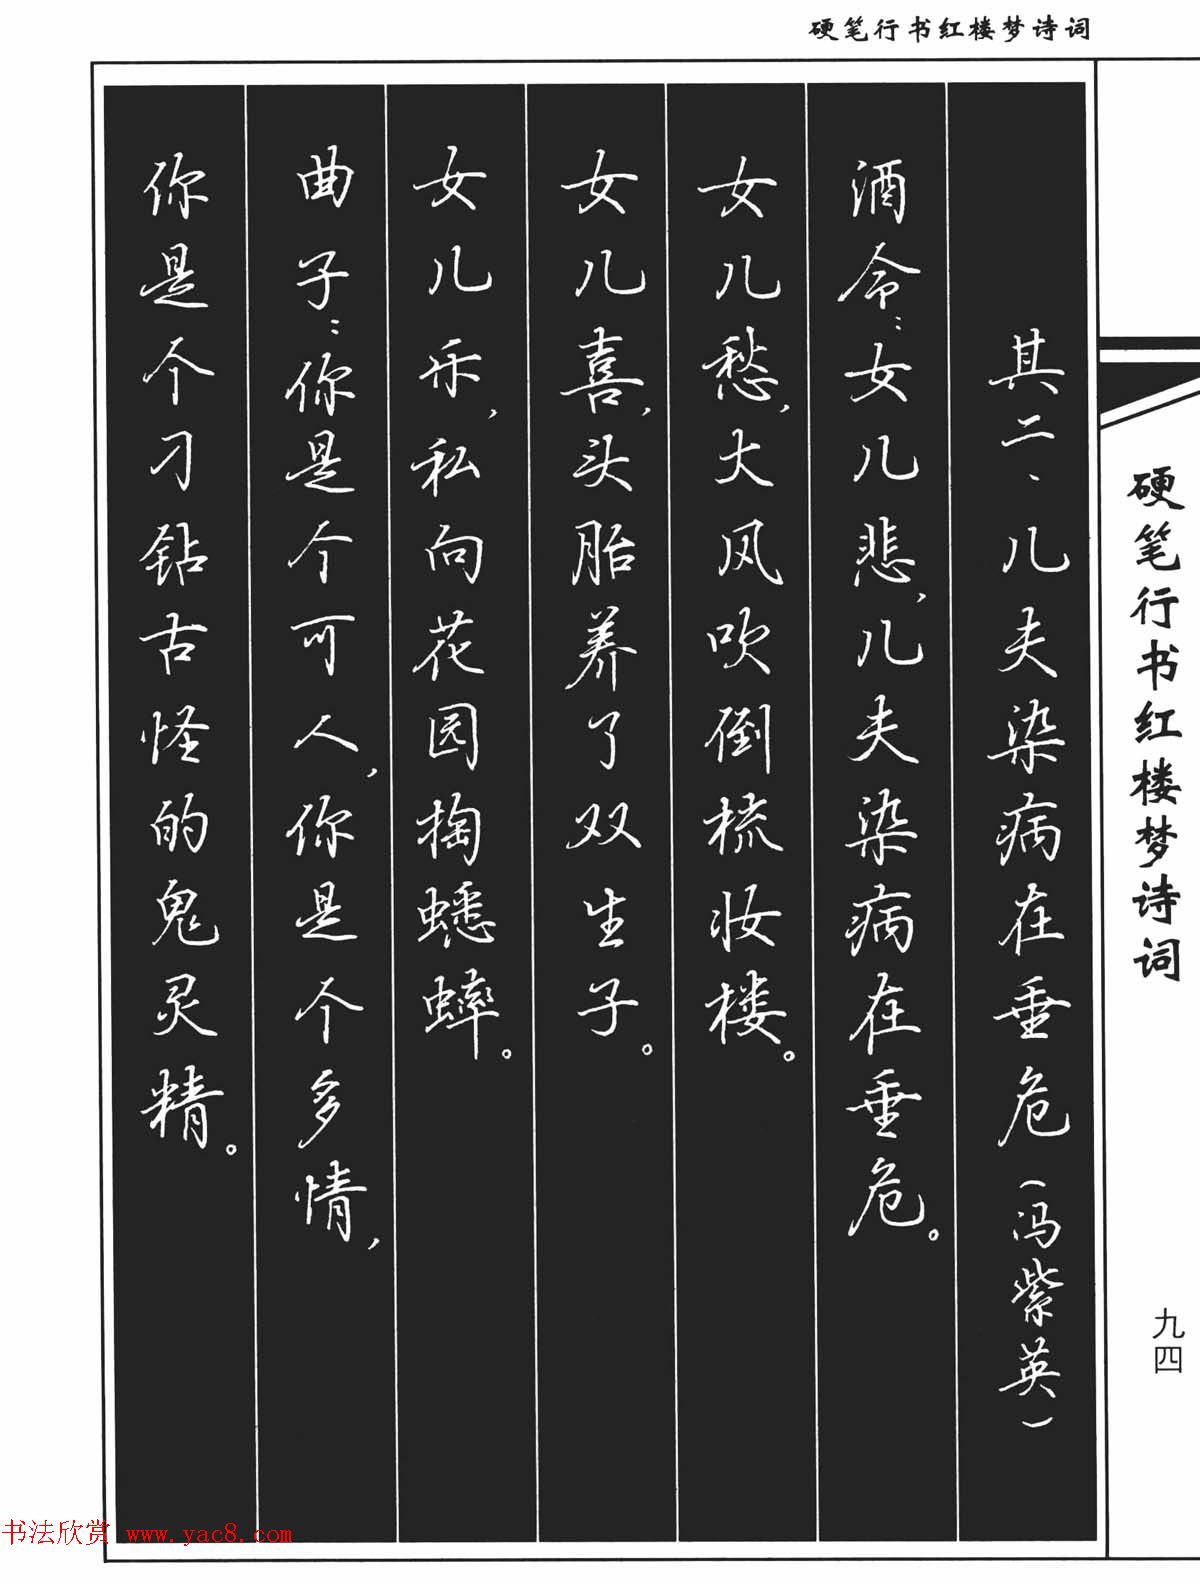 硬笔行书红楼梦诗词
硬笔行书红楼梦诗词
九四
其二、儿夫染病在垂危(冯紫英)
酒令:女儿悲,儿夫染病在垂危。
女儿愁,大风吹倒梳妆楼。
女儿喜,头胎养了双生子。
女儿乐,私向花园掏蟋蟀。
曲子:你是个可人,你是个多情,
你是个刁钻古怪的鬼灵精。
书法欣赏 www.yac8.com